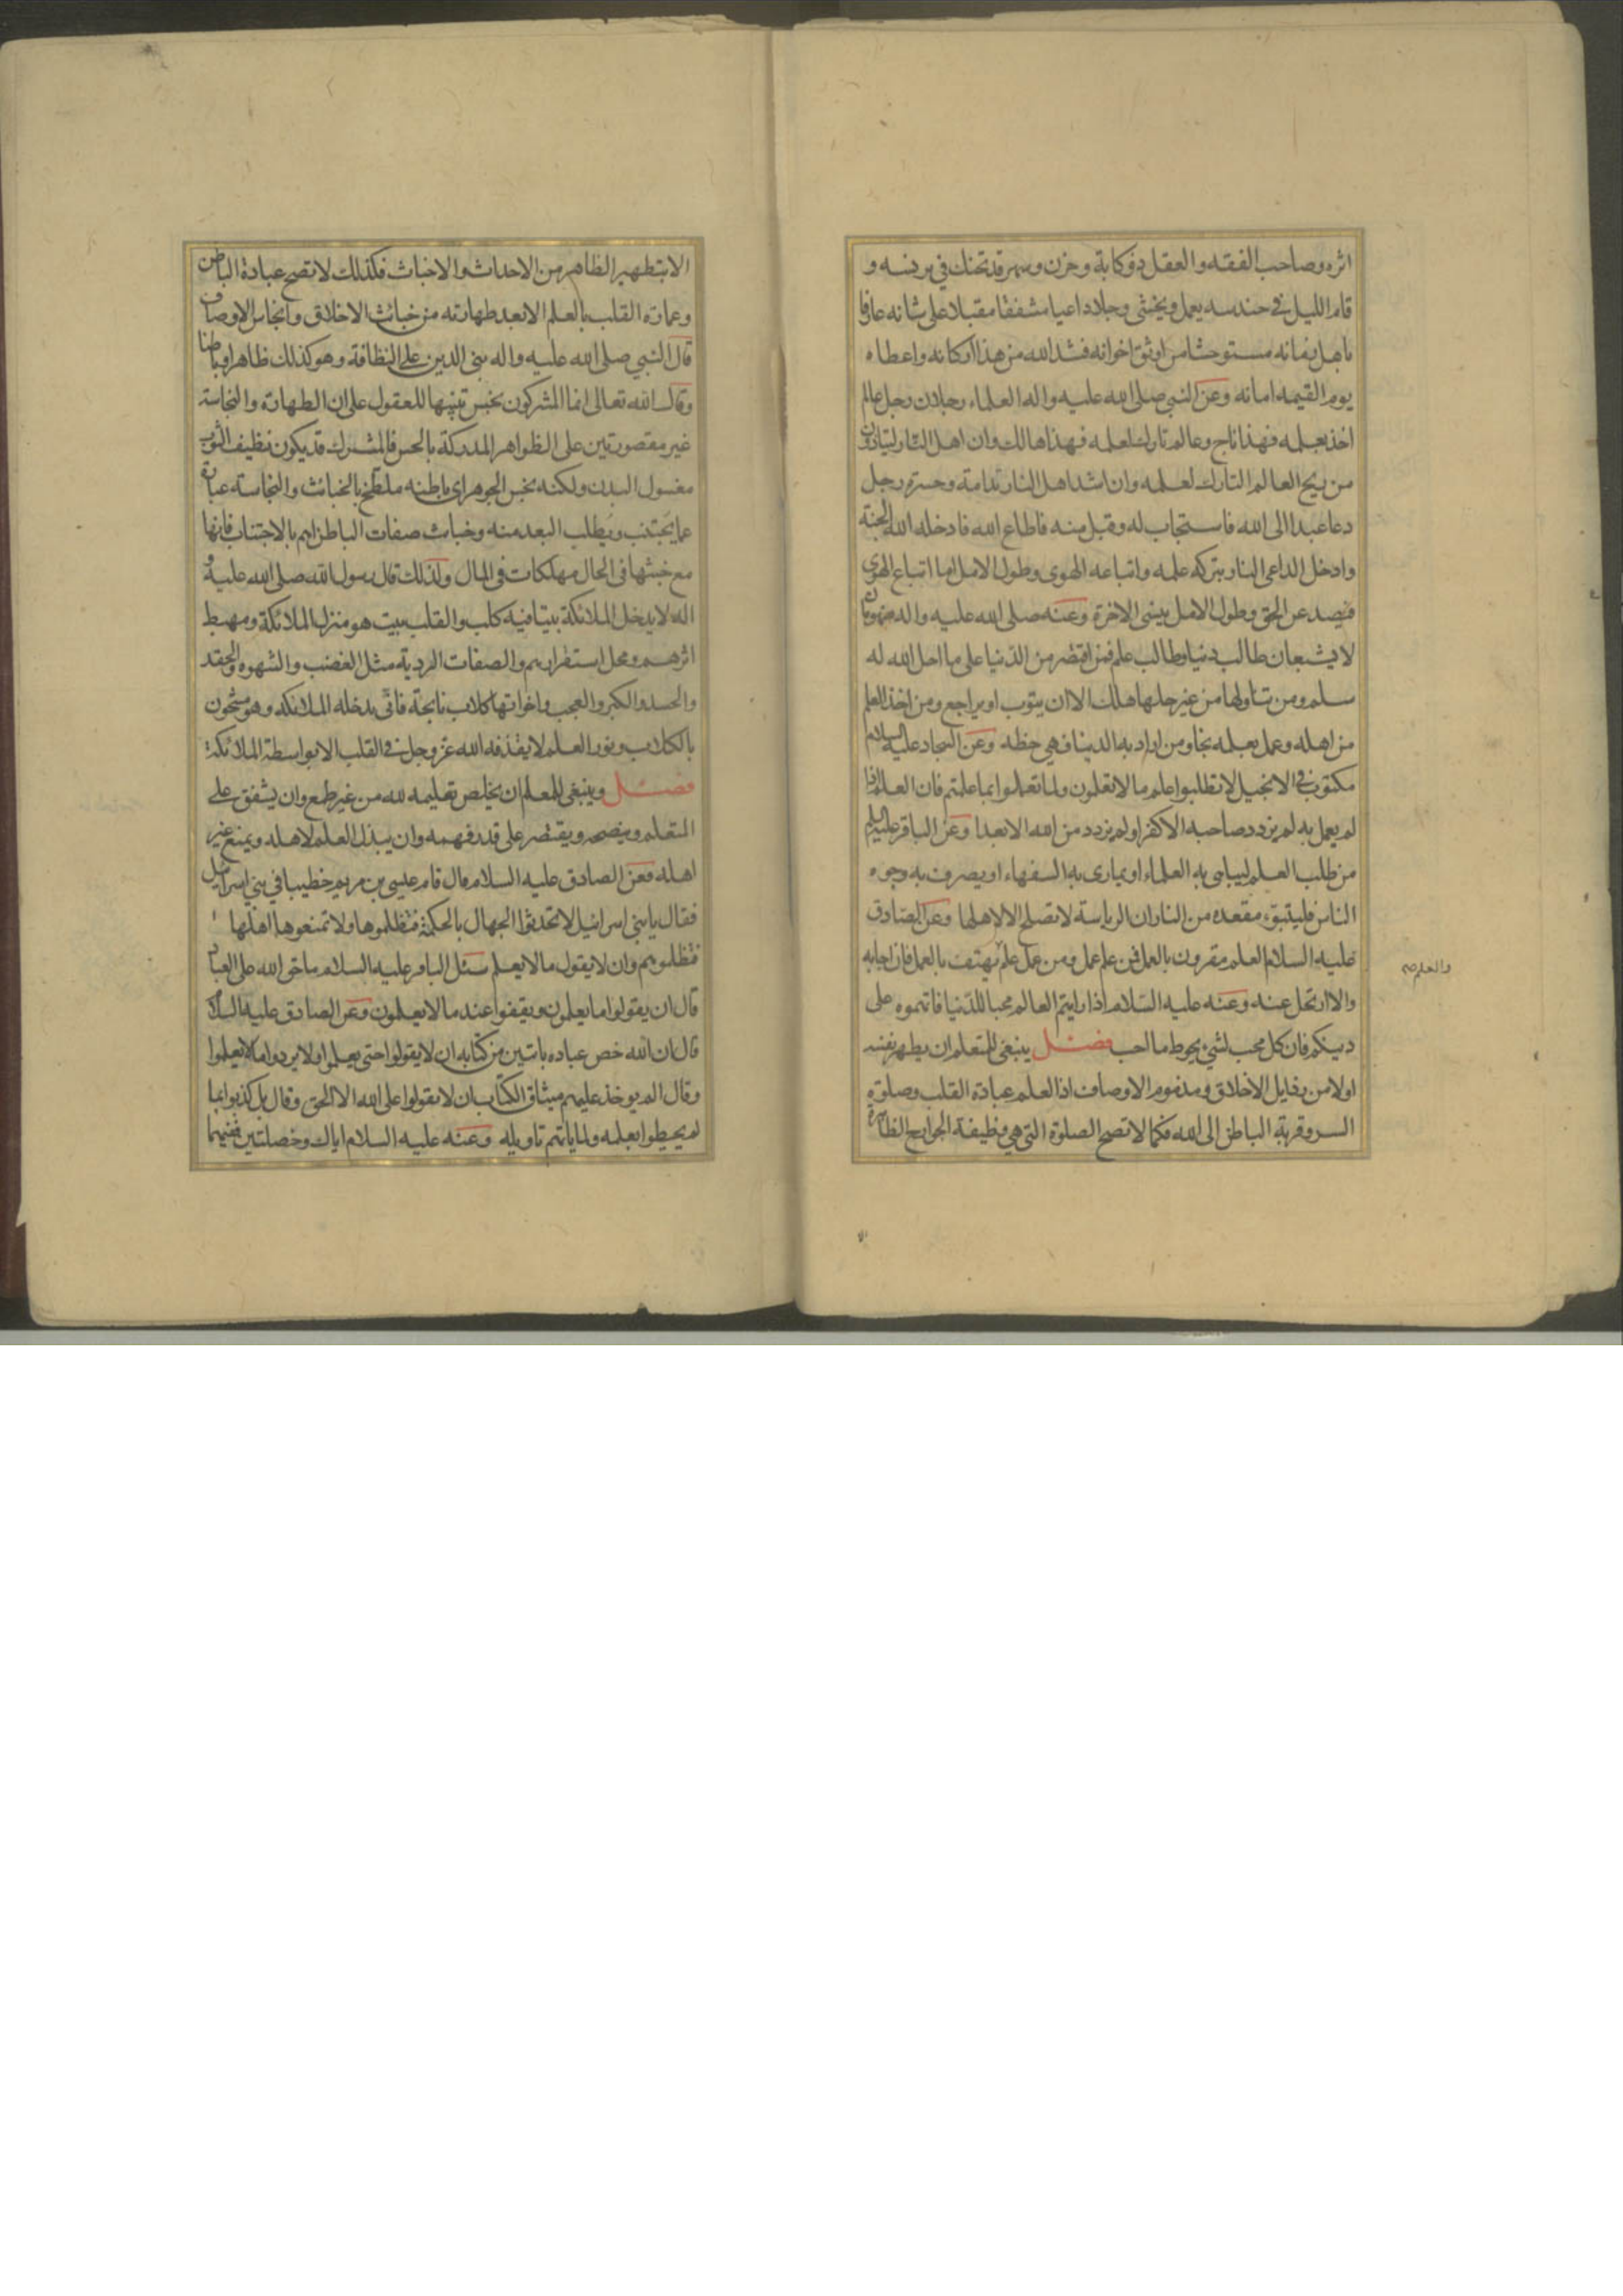 اثره وصاحب الفقه والعقل ذو كابة وحزن وسهر قد تحنك في برنسه و
قام الليل في حندسه يعمل ويخشى وجلا داعيا مشفقا مقبلا على شانه عارفا
باهل زمانه مستوحشا من اوثق اخوانه فشد الله من هذا اركانه واعطاه
يوم القيمه امانه وعن النبي صلى الله عليه واله العلماء رجلان رجل عالم
اخذ بعلمه فهذا ناج وعالم تارك لعلمه فهذا هالك وان اهل النار ليتاذون
من ريح العالم التارك لعلمه وان اشد اهل النار ندامة وحسرة رجل
دعا عبدا الى الله فاستجاب له وقبل منه فاطاع الله فادخله الله الجنة
وادخل الداعي النار بتركه علمه واتباعه الهوى وطول الامل اما اتباع الهوى
فيصد عن الحق وطول الامل ينسى الاخرة وعنه صلى الله عليه واله منهومان
لا يشبعان طالب دنيا وطالب علم فمن اقتصر من الدنيا على ما احل الله له
سلم ومن تناولها من غير حلها هلك الا ان يتوب او يراجع ومن اخذ العلم
من اهله وعمل بعلمه نجا ومن اراد به الدنيا فهي حظه وعن السجاد عليه السلام
مكتوب في الانجيل لا تطلبوا علم ما لا تعلمون ولما تعملوا بما علمتم فان العلم اذا
لم يعمل به لم يزدد صاحبه الا كفرا ولم يزدد من الله الا بعدا وعن الباقر عليه السلم
من طلب العلم ليباهى به العلماء او يمارى به السفهاء او يصرف به وجوه
الناس فليتبوء مقعده من النار ان الرياسة لا تصلح الا لاهلها وعن الصادق
عليه السلام العلم مقرون بالعمل فمن علم عمل ومن عمل علم يهتف بالعمل فان اجابه
والعلم صح
والا ارتحل عنه وعنه عليه السلام اذا رايتم العالم محبا للدنيا فاتهموه على
دينكم فان كل محب لشي يحوط ما احب فصل ينبغي للمتعلم ان يطهر نفسه
اولا من رذايل الاخلاق ومذموم الاوصاف اذ العلم عبادة القلب وصلوة
السر وقربة الباطن الى الله فكما لا تصح الصلوة التي هي وظيفة الجوارح الظاهرة
الا بتطهير الظاهر من الاحداث والاخباث فكذلك لا تصح عبادة الباطن
وعمارة القلب بالعلم الا بعد طهارته من خبائث الاخلاق وانجاس الاوصاف
قال النبي صلى الله عليه واله بني الدين على النظافة وهو كذلك ظاهرا وباطنا
وقال الله تعالى انما المشركون نجس تنبيها للعقول على ان الطهارة والنجاسة
غير مقصورتين على الظواهر المدركة بالحس فالمشرك قد يكون نظيف الثوب
مغسول البدن ولكنه نجس الجوهر اى باطنه ملطخ بالخبائث والنجاسة عبارة
عما يجتنب ويطلب البعد منه وخباث صفات الباطن اهم بالاجتناب فانها
مع خبثها في الحال مهلكات في المال ولذلك قال رسول الله صلى الله عليه و
اله لا يدخل الملائكة بيتا فيه كلب والقلب بيت هو منزل الملائكة ومهبط
اثرهم ومحل استقرارهم والصفات الردية مثل الغضب والشهوه والحقد
والحسد والكبر والعجب واخواتها كلاب نابحة فانى يدخله الملائكه وهو مشحون
بالكلاب ونور العلم لا يقذفه الله عز وجل في القلب الا بواسطة الملائكة
فصل وينبغي للمعلم ان يخلص تعليمه لله من غير طمع وان يشفق على
المتعلم وينصحه ويقتصر على قدر فهمه وان يبذل العلم لاهله ويمنع غير
اهله فعن الصادق عليه السلام قال قام عيسى بن مريم خطيبا في بني اسرائيل
فقال يا بني اسرائيل لا تحدثوا الجهال بالحكمة فتظلموها ولا تمنعوها اهلها
فتظلموهم وان لا يقول ما لا يعلم سئل الباقر عليه السلام ما حق الله على العباد
قال ان يقولوا ما يعلمون ويقفوا عند ما لا يعلمون وعن الصادق عليه السلام
قال ان الله خص عباده بايتين من كتابه ان لا يقولوا حتى يعلموا ولا يردوا ما لا يعلموا
وقال الم يوخذ عليهم ميثاق الكتاب ان لا يقولوا على الله الا الحق وقال بل كذبوا بما
لم يحيطوا بعلمه ولما ياتهم تاويله وعنه عليه السلام اياك وخصلتين ففيهما